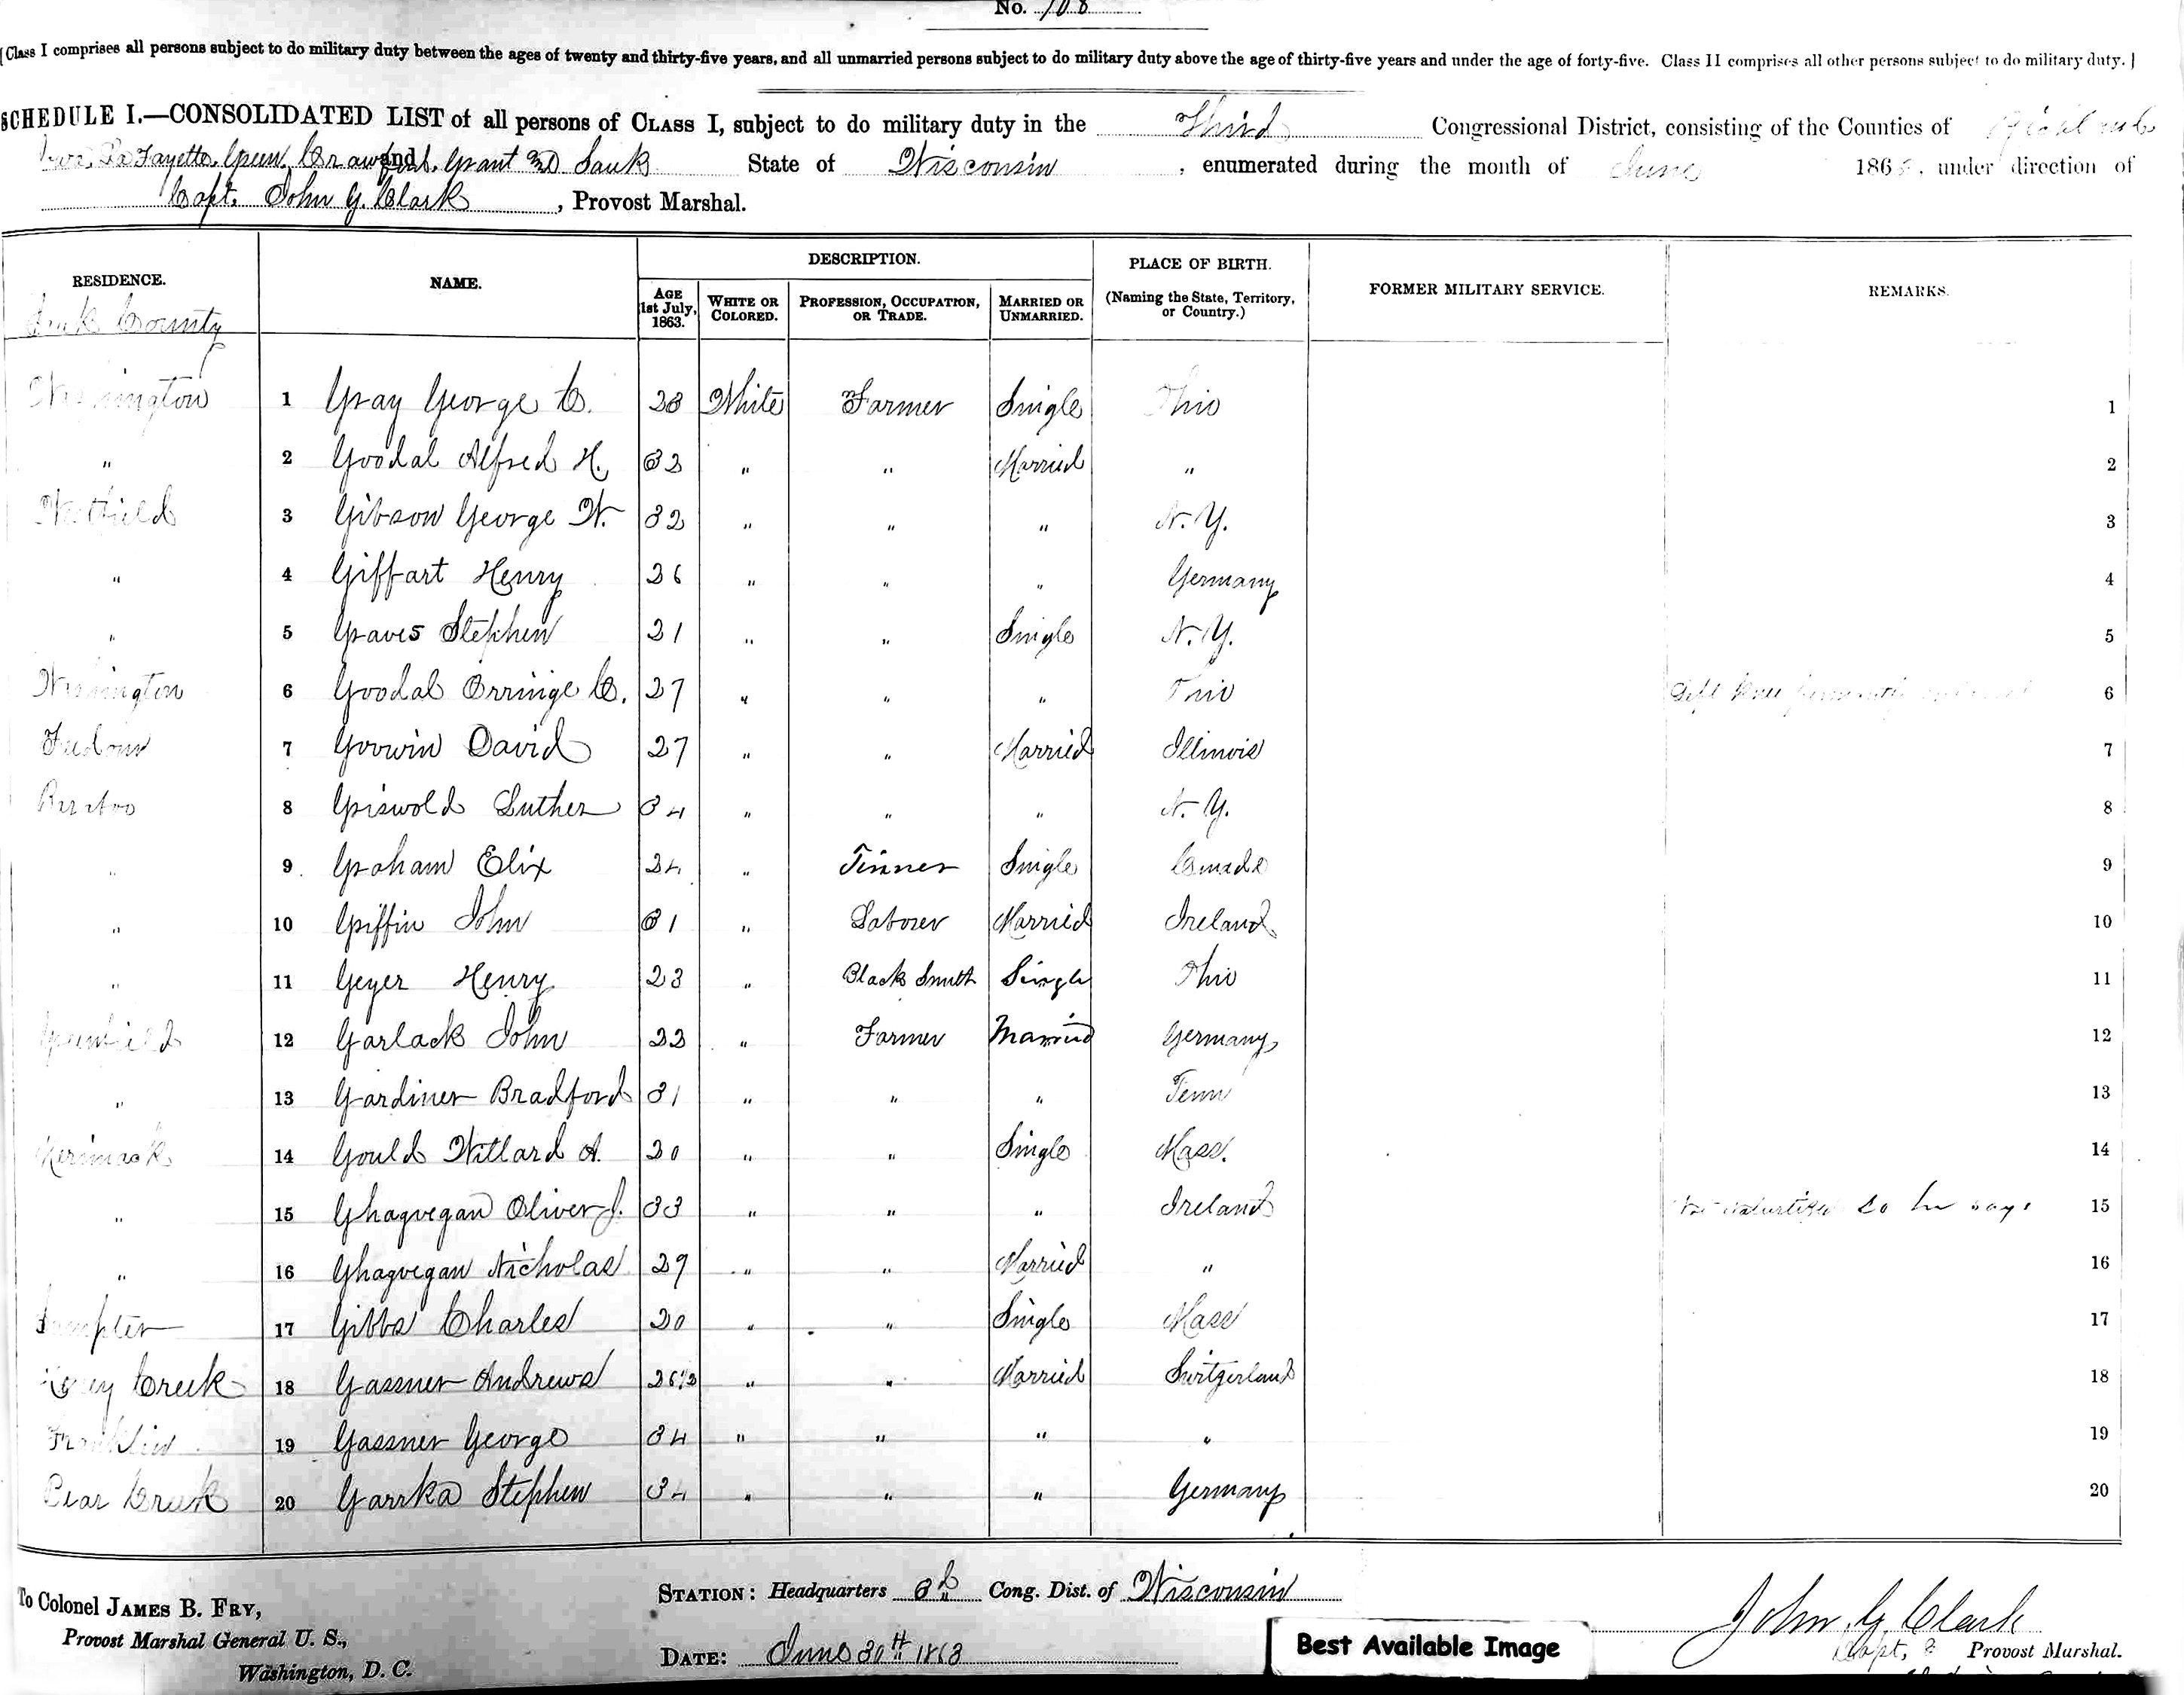 No. 108
[Class I comprises all persons subject to do military duty between the ages of twenty and thirty-five years, and all unmarried persons subject to do military duty above the age of thirty-five years and under the age of forty-five. Class II comprises all other persons subject to do military duty.]
SCHEDULE I.—CONSOLIDATED LIST of all persons of CLASS I, subject to do military duty in the Third Congressional District, consisting of the Counties of
La Fayette, Green, Crawford, Grant and Sauk State of Wisconsin, enumerated during the month of June 186, under direction of
Capt. John G. Clark, Provost Marshal.
RESIDENCE. NAME. DESCRIPTION. PLACE OF BIRTH. (Naming the State, Territory, or Country.) FORMER MILITARY SERVICE. REMARKS.
AGE 1st July, 1863. WHITE OR COLORED. PROFESSION, OCCUPATION, OR TRADE. MARRIED OR UNMARRIED.
Sauk County
Washington 1 Gray George C. 23 White Farmer Single Ohio 1
" 2 Goodal Alfred H. 32 " " Married " 2
Westfield 3 Gibson George W. 32 " " " N.Y. 3
" 4 Giffart Henry 26 " " " Germany 4
" 5 Graves Stephen 21 " " Single N.Y. 5
Washington 6 Goodal Orringe C. 27 " " " Ohio Left knee 6
Freedom 7 Goowin David 27 " " Married Illinois 7
Baraboo 8 Griswold Luther 34 " " " N.Y. 8
" 9 Graham Elix 24 " Tinner Single Canada 9
" 10 Griffin John 31 " Laborer Married Ireland 10
" 11 Geyer Henry 23 " Black Smith Single Ohio 11
Greenfield 12 Garlack John 22 " Farmer Married Germany 12
" 13 Gardiner Bradford 31 " " " Tenn 13
Merimack 14 Gould Willard A. 20 " " Single Mass. 14
" 15 Ghagvegan Oliver J. 33 " " " Ireland So he says 15
" 16 Ghagvegan Nicholas 29 " " Married " 16
Sumpter 17 Gibbs Charles 20 " " Single Mass 17
Honey Creek 18 Gassner Andrews 26½ " " Married Switzerland 18
Franklin 19 Gassner George 34 " " " " 19
Bear Creek 20 Garrka Stephen 34 " " " Germany 20
To Colonel JAMES B. FRY,
Provost Marshal General U. S.,
Washington, D. C.
STATION: Headquarters 3d Cong. Dist. of Wisconsin
DATE: June 30th 1863
Best Available Image
John G. Clark
Capt. & Provost Marshal.